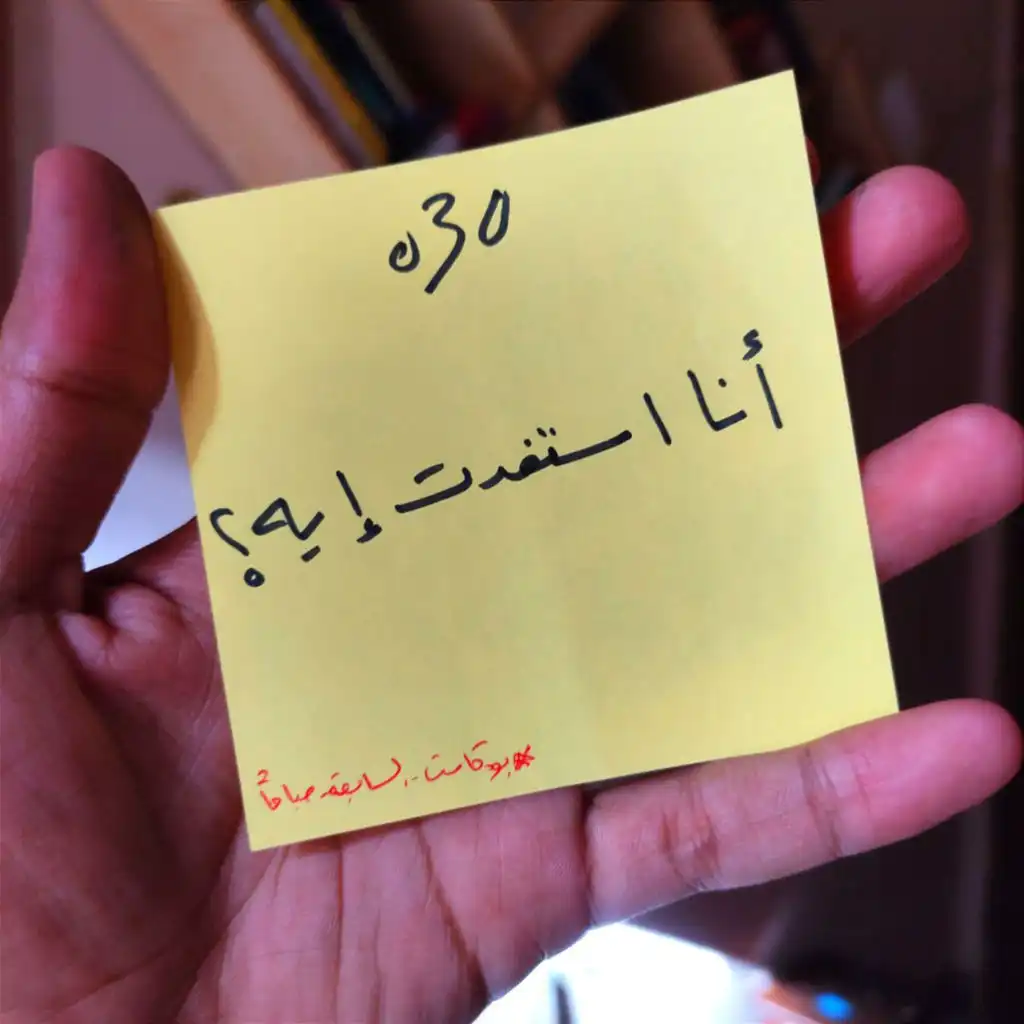 030
أنا استفدت إيه؟
#بودكاست_السابعة_صباحاً